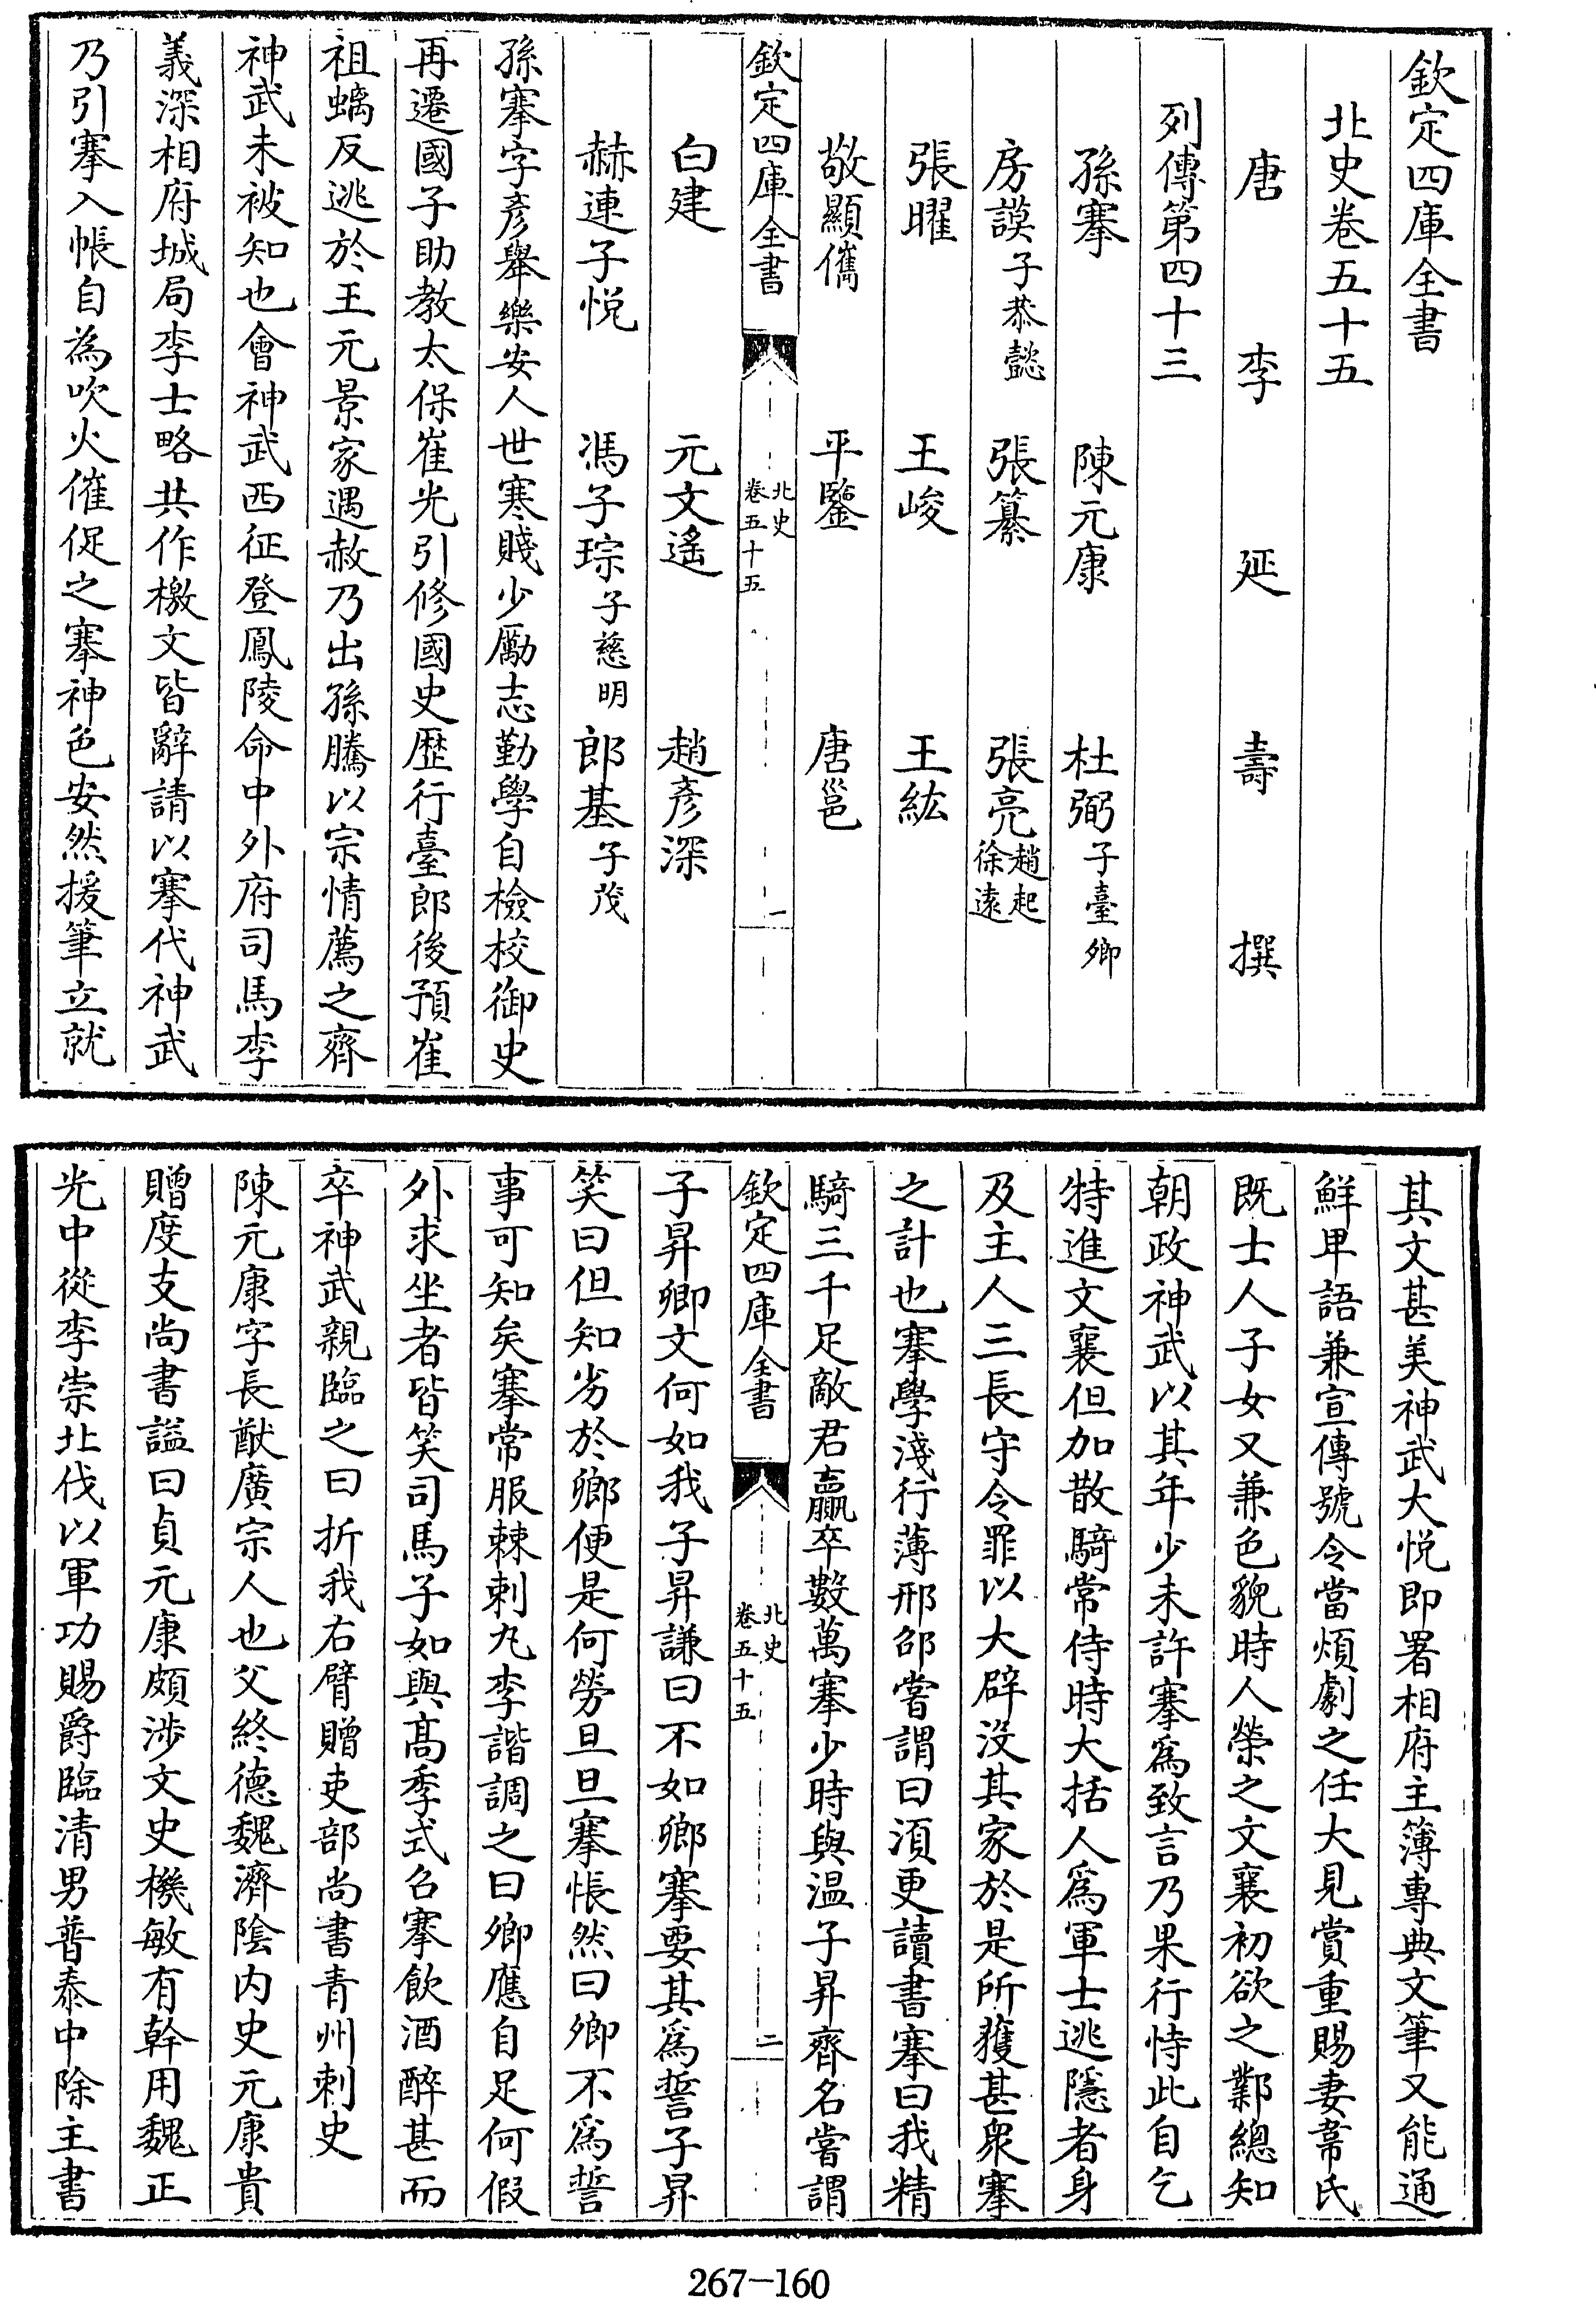 欽定四庫全書
北史卷五十五
唐李延壽撰
列傳第四十三
孫搴 陳元康 杜弼子臺卿
房謨子恭懿 張纂 張亮趙起徐遠
張曜 王峻 王紘
敬顯儁 平鑒 唐邕
欽定四庫全書 北史卷五十五 一
白建 元文遙 趙彦深
赫連子悦 馮子琮子慈明 郎基子茂
孫搴字彦舉樂安人世寒賤少勵志勤學自檢校御史
再遷國子助教太保崔光引修國史歷行臺郎後預崔
祖螭反逃於王元景家遇赦乃出孫騰以宗情薦之齊
神武未被知也會神武西征登鳳陵命中外府司馬李
義深相府城局李士略共作檄文皆辭請以搴代神武
乃引搴入帳自為吹火催促之搴神色安然援筆立就
其文甚美神武大悦即署相府主簿專典文筆又能通
鮮卑語兼宣傳號令當煩劇之任大見賞重賜妻韋氏
既士人子女又兼色貌時人榮之文襄初欲之鄴總知
朝政神武以其年少未許搴爲致言乃果行恃此自乞
特進文襄但加散騎常侍時大括人爲軍士逃隱者身
及主人三長守令罪以大辟没其家於是所獲甚衆搴
之計也搴學淺行薄邢邵嘗謂曰須更讀書搴曰我精
騎三千足敵君羸卒數萬搴少時與温子昇齊名嘗謂
欽定四庫全書 北史卷五十五 二
子昇卿文何如我子昇謙曰不如卿搴要其爲誓子昇
笑曰但知劣於卿便是何勞旦旦搴悵然曰卿不爲誓
事可知矣搴常服棘刺丸李諧調之曰卿應自足何假
外求坐者皆笑司馬子如與髙季式召搴飲酒醉甚而
卒神武親臨之曰折我右臂贈吏部尚書青州刺史
陳元康字長猷廣宗人也父終德魏濟陰内史元康貴
贈度支尚書謚曰貞元康頗涉文史機敏有幹用魏正
光中從李崇北伐以軍功賜爵臨清男普泰中除主書
267-160